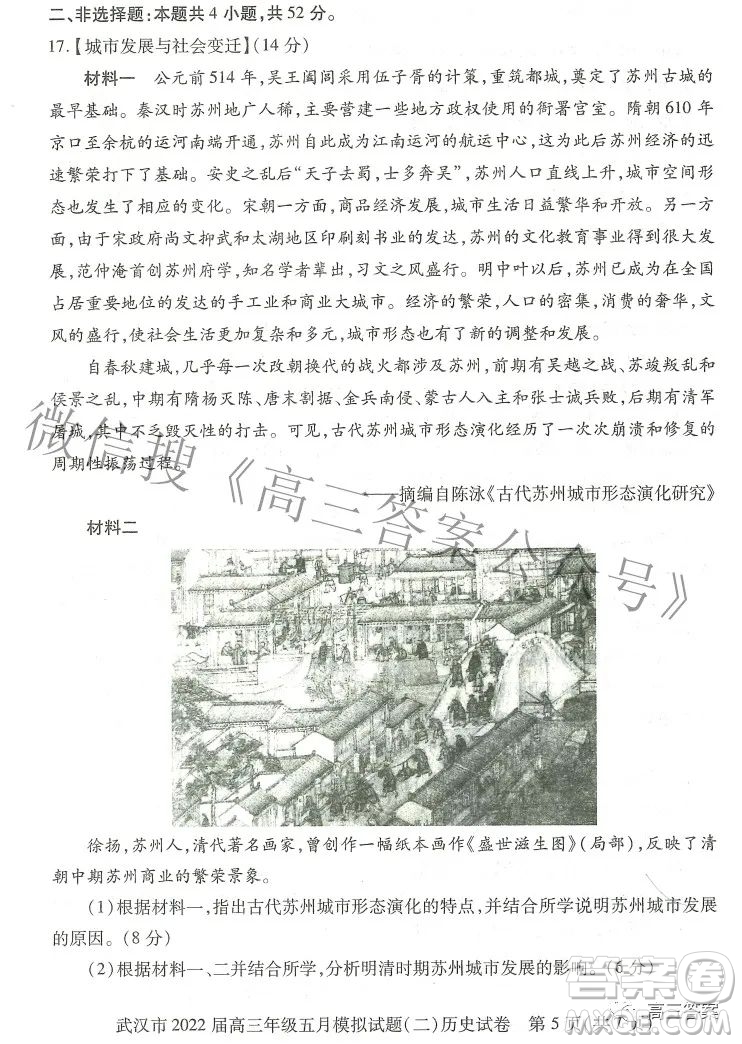 二、非选择题:本题共4小题,共52分。
17.【城市发展与社会变迁】(14分)
材料一 公元前514年,吴王阖闾采用伍子胥的计策,重筑都城,奠定了苏州古城的
最早基础。秦汉时苏州地广人稀,主要营建一些地方政权使用的衙署宫室。隋朝610年
京口至余杭的运河南端开通,苏州自然成为江南运河的航运中心,这为苏州经济的迅
速繁荣打下了基础。安史之乱后"天子去蜀,士多奔吴",苏州人口直线上升,城市空间形
态也发生了相应的变化。宋朝一方面,商品经济发展,城市生活日益繁华和开放。另一方
面,由于宋政府尚文抑武和太湖地区印刷刻书业的发达,苏州的文化教育事业得到很大
发展,范仲淹首创苏州府学,知名学者辈出,习文之风盛行。明中叶以后,苏州已成为在全国
占居重要地位的发达的手工业和商业大城市。经济的繁荣,人口的密集,消费的奢华,文
风的盛行,使社会生活更加复杂和多元,城市形态也有了新的调整和发展。
自春秋建城,几乎每一次改朝换代的战火都涉及苏州,前期有吴越之战、苏峻叛乱和
侯景之乱,中期有隋杨灭陈、唐末割据、金兵南侵、蒙古人入主和张士诚兵败,后期有清军
屠城,其中不乏毁灭性的打击。可见,古代苏州城市形态演化经历了一次次崩溃和修复的
周期性振荡过程。
——摘编自陈泳《古代苏州城市形态演化研究》
材料二
徐扬,苏州人,清代著名画家,曾创作一幅纸本画作《盛世滋生图》(局部),反映了清
朝中期苏州商业的繁荣景象。
(1)根据材料一,指出古代苏州城市形态演化的特点,并结合所学说明苏州城市发展
的原因。(8分)
(2)根据材料一、二并结合所学,分析明清时期苏州城市发展的影响。(6分)
武汉市2022届高三年级五月模拟试题(二)历史试卷 第5页 共7页
微信搜《高三答案公众号》
高三答案
答案圈
MXQE.COM